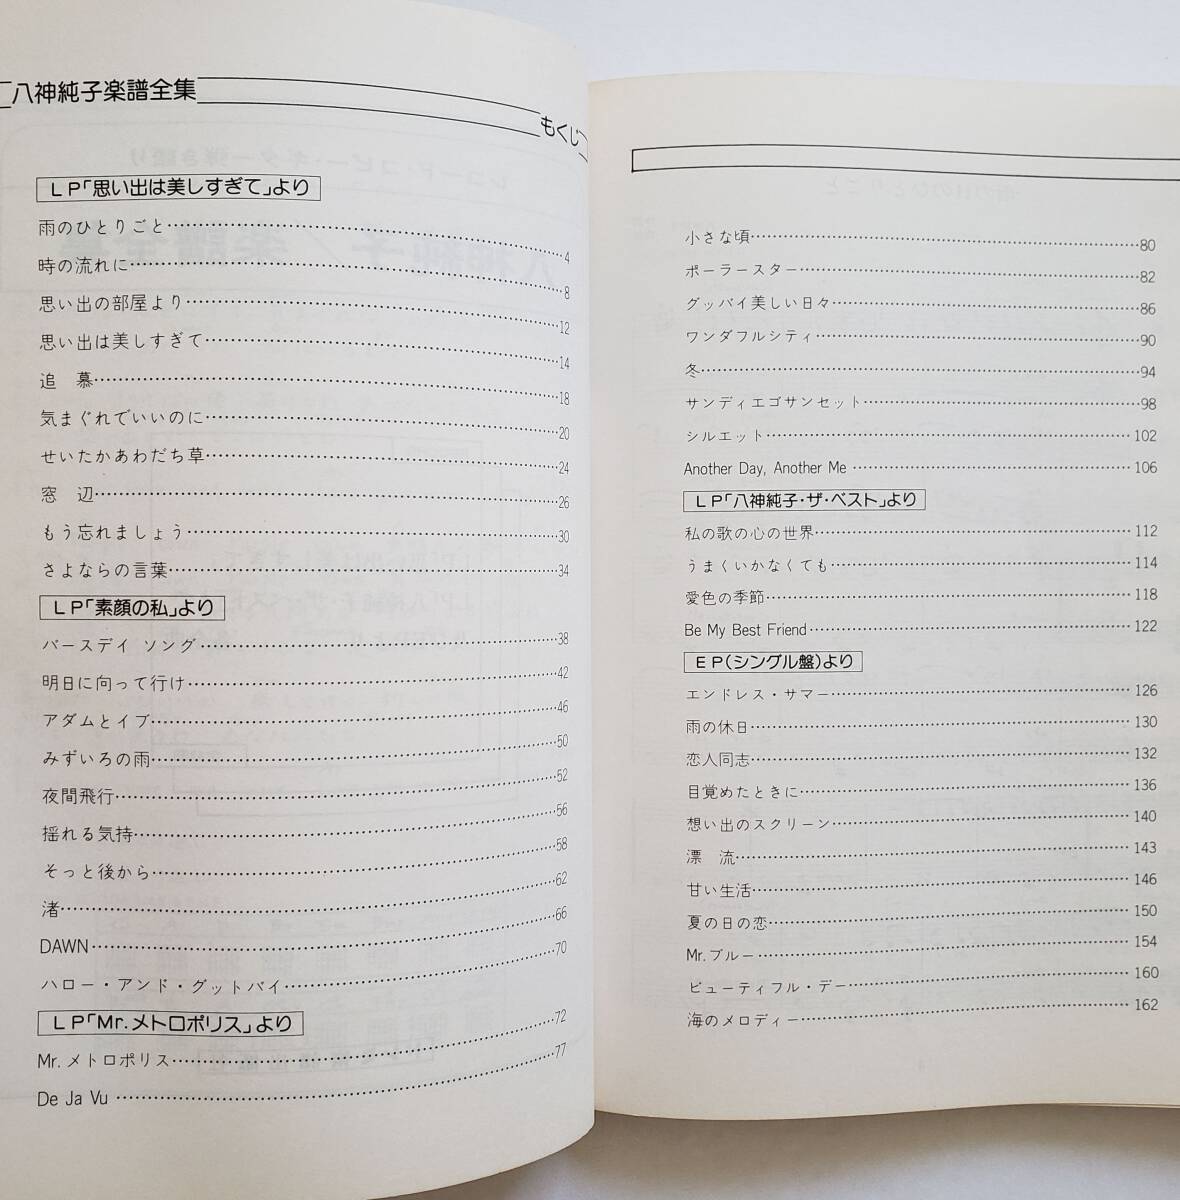 八神純子楽譜全集
もくじ
LP「思い出は美しすぎて」より
雨のひとりごと…………4
時の流れに…………8
思い出の部屋より…………12
思い出は美しすぎて…………14
追　慕…………18
気まぐれでいいのに…………20
せいたかあわだち草…………24
窓　辺…………26
もう忘れましょう…………30
さよならの言葉…………34
LP「素顔の私」より
バースデイ ソング…………38
明日に向って行け…………42
アダムとイブ…………46
みずいろの雨…………50
夜間飛行…………52
揺れる気持…………56
そっと後から…………58
渚…………62
DAWN…………66
ハロー・アンド・グットバイ…………70
LP「Mr.メトロポリス」より
Mr.メトロポリス…………72
De Ja Vu …………77
小さな頃…………80
ポーラースター…………82
グッバイ美しい日々…………86
ワンダフルシティ…………90
冬…………94
サンディエゴサンセット…………98
シルエット…………102
Another Day, Another Me …………106
LP「八神純子・ザ・ベスト」より
私の歌の心の世界…………112
うまくいかなくても…………114
愛色の季節…………118
Be My Best Friend…………122
EP(シングル盤)より
エンドレス・サマー…………126
雨の休日…………130
恋人同志…………132
目覚めたときに…………136
想い出のスクリーン…………140
漂　流…………143
甘い生活…………146
夏の日の恋…………150
Mr.ブルー…………154
ビューティフル・デー…………160
海のメロディー…………162